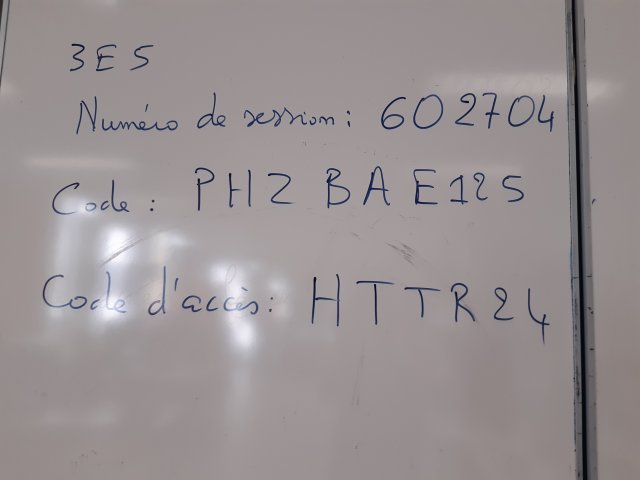 3E5
Numéro de session : 602704
Code : PHZ BAE125
Code d'accès : HTTR24